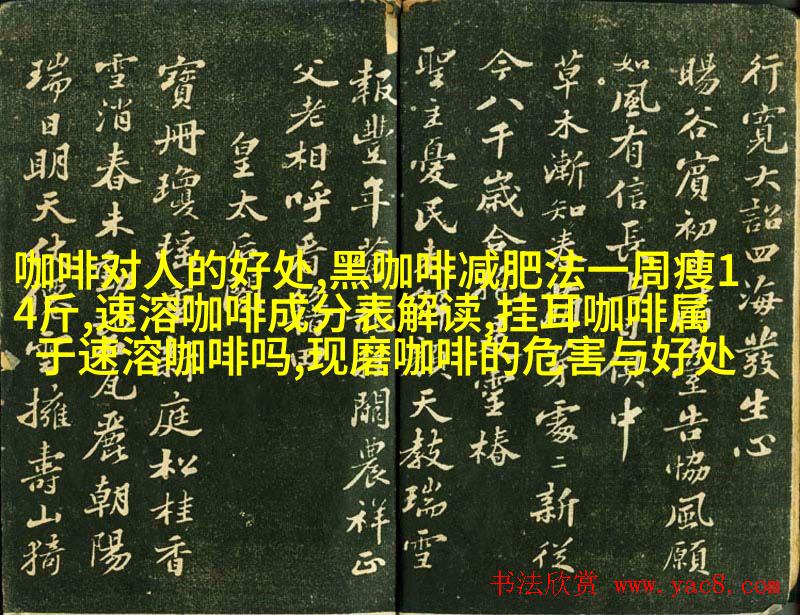 行寬大詔四海發生心
暘谷賓初告協風願
如風有信長中
草木漸知春處〻新從
今八千歲合靈椿
聖主憂民天教瑞雪
報豐年關農祥正
父老相呼看
皇太后
寶冊瓊瑤庭松桂香
雪消春未瓦麗朝陽
瑞日明天仗雲擁壽山猗
咖啡对人的好处,黑咖啡减肥法一周瘦1
4斤,速溶咖啡成分表解读,挂耳咖啡属
于速溶咖啡吗,现磨咖啡的危害与好处
书法欣赏 www.yac8.com